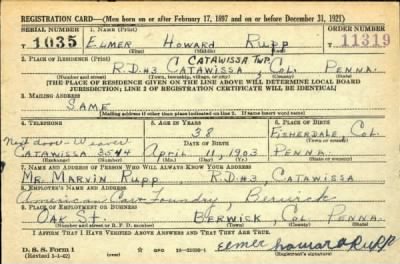 REGISTRATION CARD—(Men born on or after February 17, 1897 and on or before December 31, 1921)
SERIAL NUMBER 1. NAME (Print) ORDER NUMBER
1035 ELMER HOWARD RUPP 11319
(First) (Middle) (Last)
2. PLACE OF RESIDENCE (Print) C CATAWISSA TWP.
R.D.#3 CATAWISSA, COL. PENNA.
(Number and street) (Town, township, village, or city) (County) (State)
[THE PLACE OF RESIDENCE GIVEN ON THE LINE ABOVE WILL DETERMINE LOCAL BOARD
JURISDICTION; LINE 2 OF REGISTRATION CERTIFICATE WILL BE IDENTICAL]
3. MAILING ADDRESS
SAME
[Mailing address if other than place indicated on line 2. If same insert word same]
4. TELEPHONE 5. AGE IN YEARS 6. PLACE OF BIRTH
38 FISHERDALE, COL.
Next door - Weaver DATE OF BIRTH (Town or county)
CATAWISSA 3544 APRIL 11, 1903 PENNA.
(Exchange) (Number) (Mo.) (Day) (Yr.) (State or country)
7. NAME AND ADDRESS OF PERSON WHO WILL ALWAYS KNOW YOUR ADDRESS
MR. MARVIN RUPP, R.D.#3 CATAWISSA
8. EMPLOYER'S NAME AND ADDRESS
American Car & Foundry, Berwick
9. PLACE OF EMPLOYMENT OR BUSINESS
OAK ST. BERWICK, COL. PENNA.
(Number and street or R. F. D. number) (Town) (County) (State)
I AFFIRM THAT I HAVE VERIFIED ABOVE ANSWERS AND THAT THEY ARE TRUE.
D. S. S. Form 1 GPO
(Revised 1-1-42) Elmer Howard Rupp
(Registrant's signature)